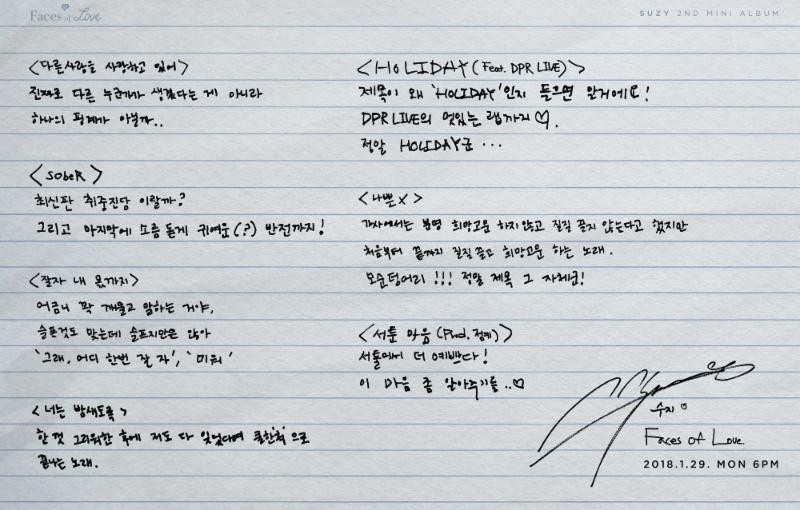 Faces of Love
SUZY 2ND MINI ALBUM
<다른사람을 사랑하고 있어>
진짜로 다른 누군가가 생겼다는 게 아니라
하나의 핑계가 아닐까..
<SObeR>
최신판 취중진담 이랄까?
그리고 마지막에 소름 돋게 귀여운(?) 반전까지!
<잘자 내 몫까지>
어금니 꽉 깨물고 말하는 거야,
슬픈것도 맞는데 슬프지만은 않아
'그래, 어디 한번 잘 자', '미워'
<너는 밤새도록>
한 껏 그리워한 후에 저도 다 잊었다며 쿨한'척'으로
끝나는 노래.
<HOLIDAY (Feat. DPR LIVE)>
제목이 왜 'HOLIDAY'인지 들으면 안거에요!
DPR LIVE의 멋있는 랩까지♡.
정말 HOLIDAY군 ...
<나쁜X>
가사에서는 분명 희망고문 하지 않고 질질 끌지 않는다고 했지만
처음부터 끝까지 질질 끌고 희망고문 하는 노래.
모순덩어리 !!! 정말 제목 그 자체군!
<서툰 마음 (Prod. 정예)>
서툴어서 더 예쁘다!
이 마음 좀 알아주기를..♡
수지
Faces of Love.
2018.1.29. MON 6PM